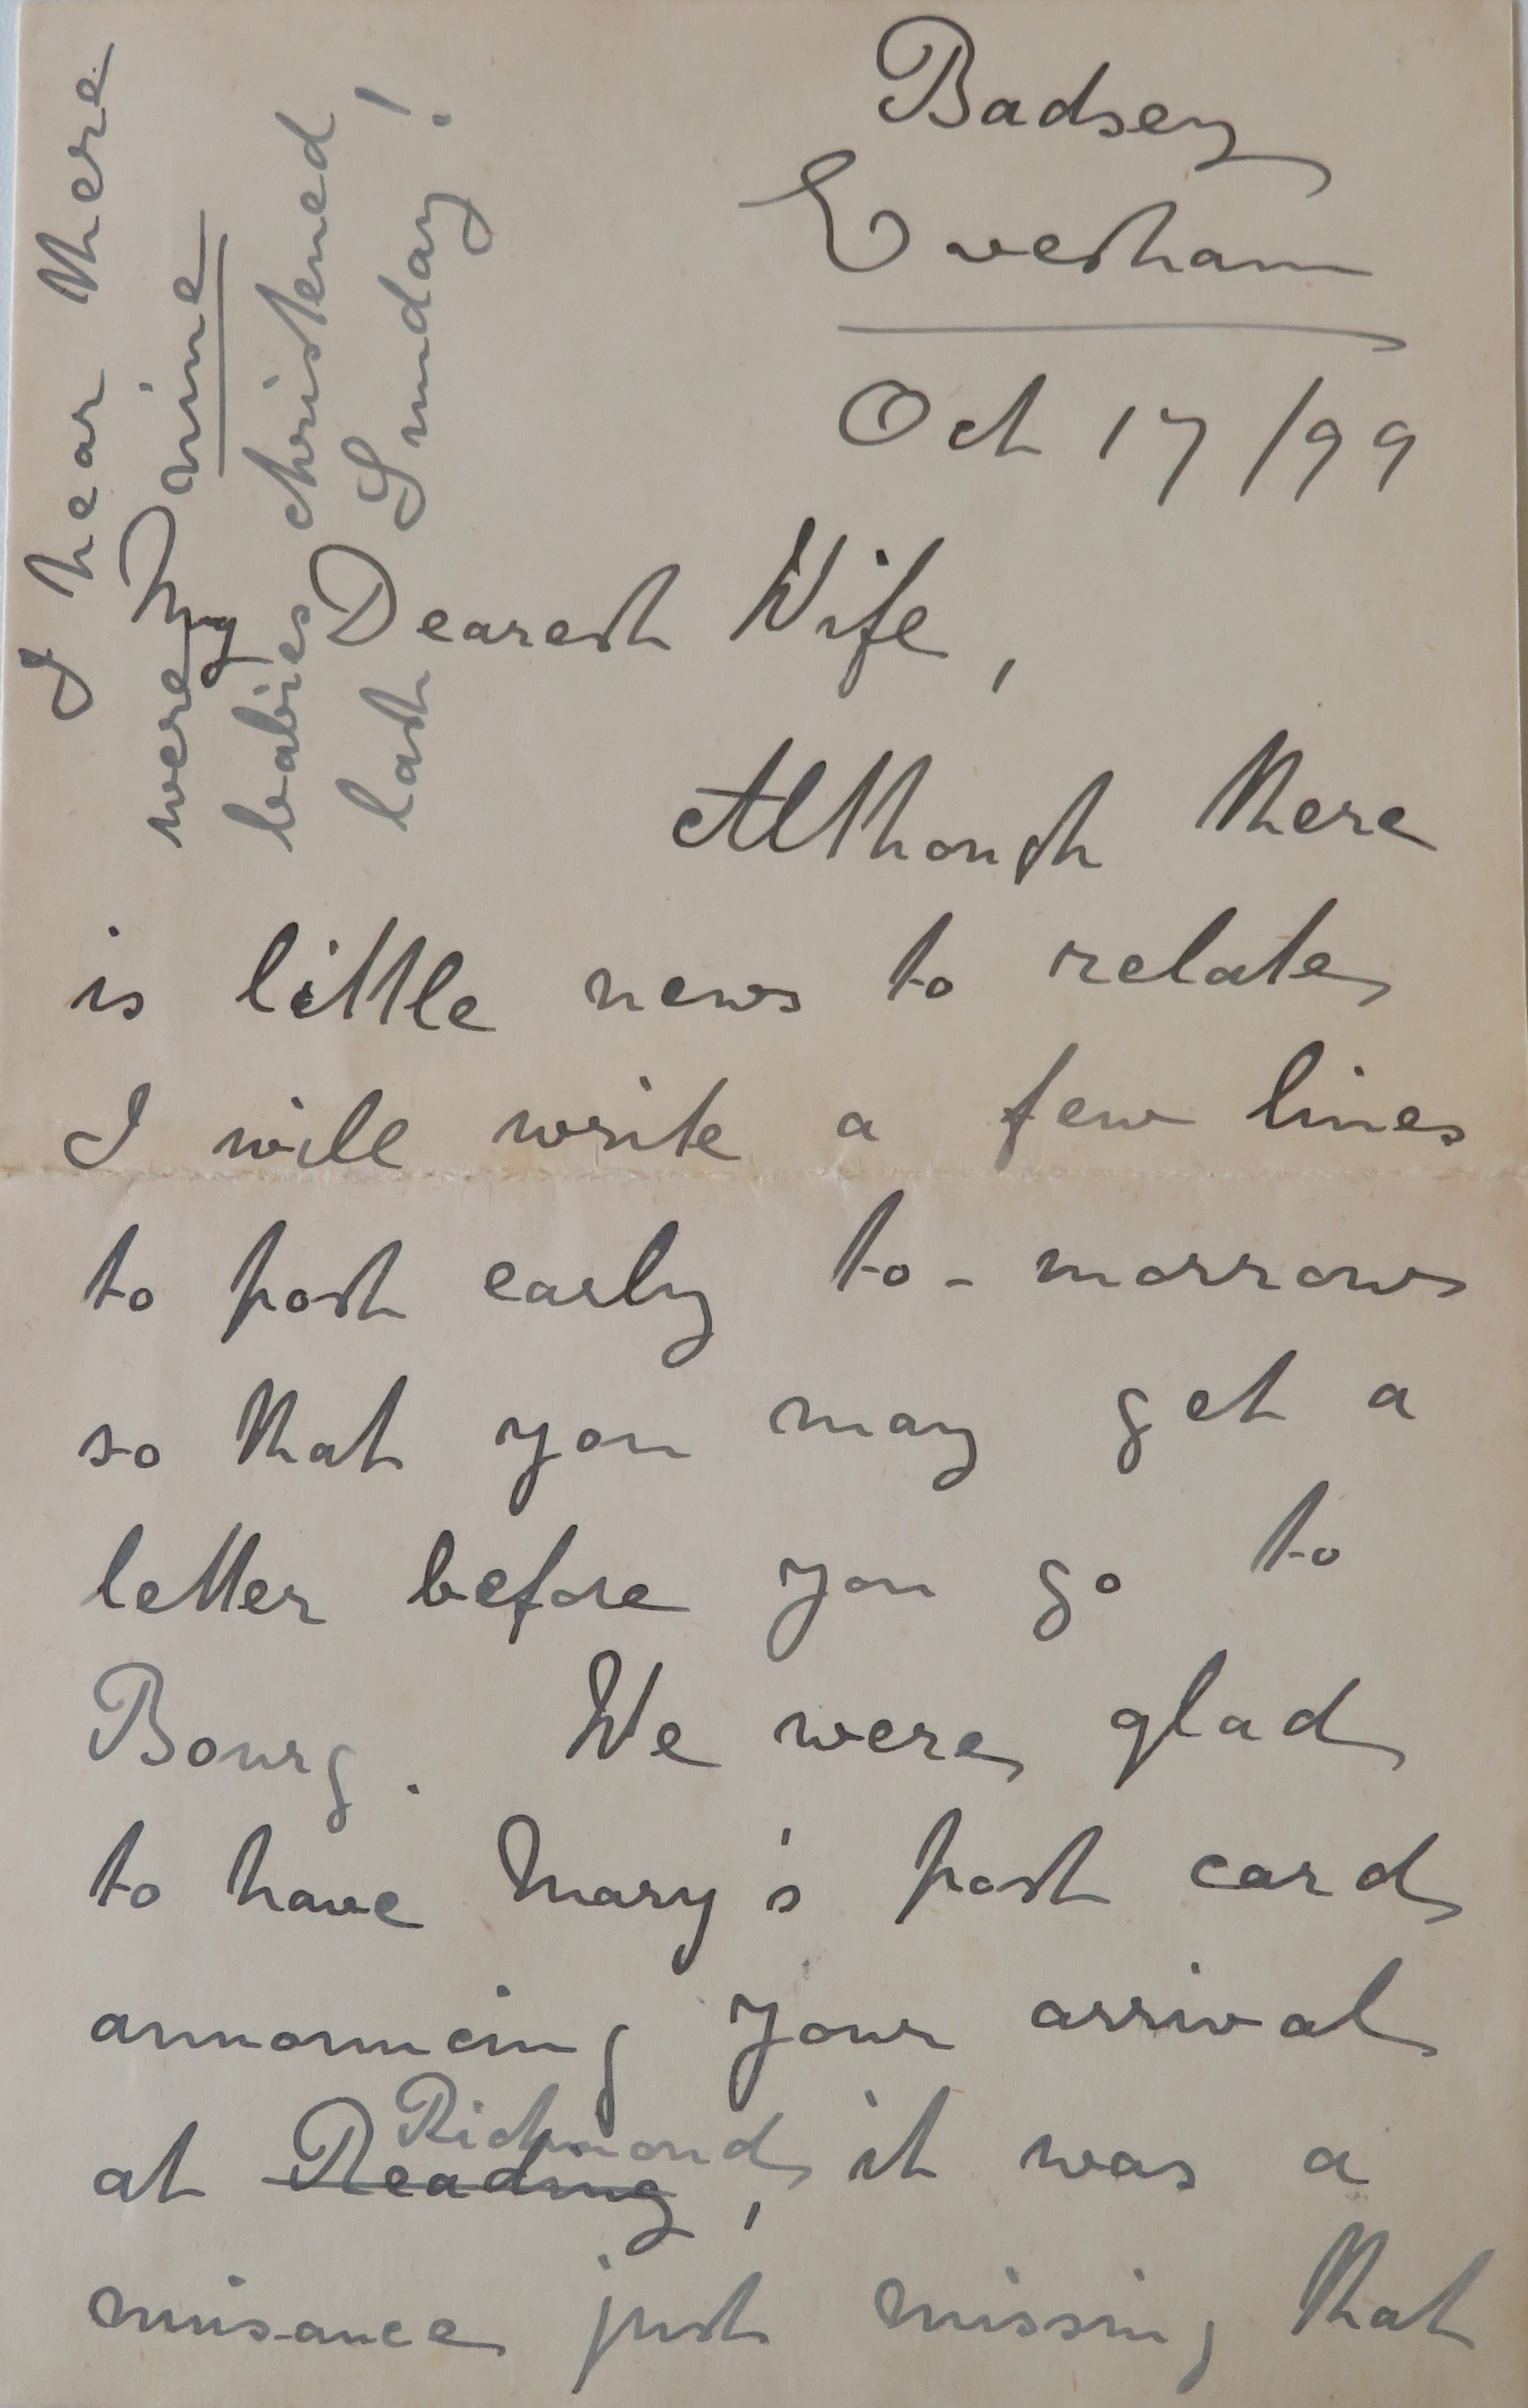 Badsey
Evesham
Oct 17/99
My Dearest Wife,
Although there
is little news to relate
I will write a few lines
to post early to-morrow
so that you may get a
letter before you go to
Bourg. We were glad
to have Mary's post card
announcing your arrival
at Reading Richmond, it was a
nuisance just missing that
I hear there
were nine
babies christened
last Sunday!